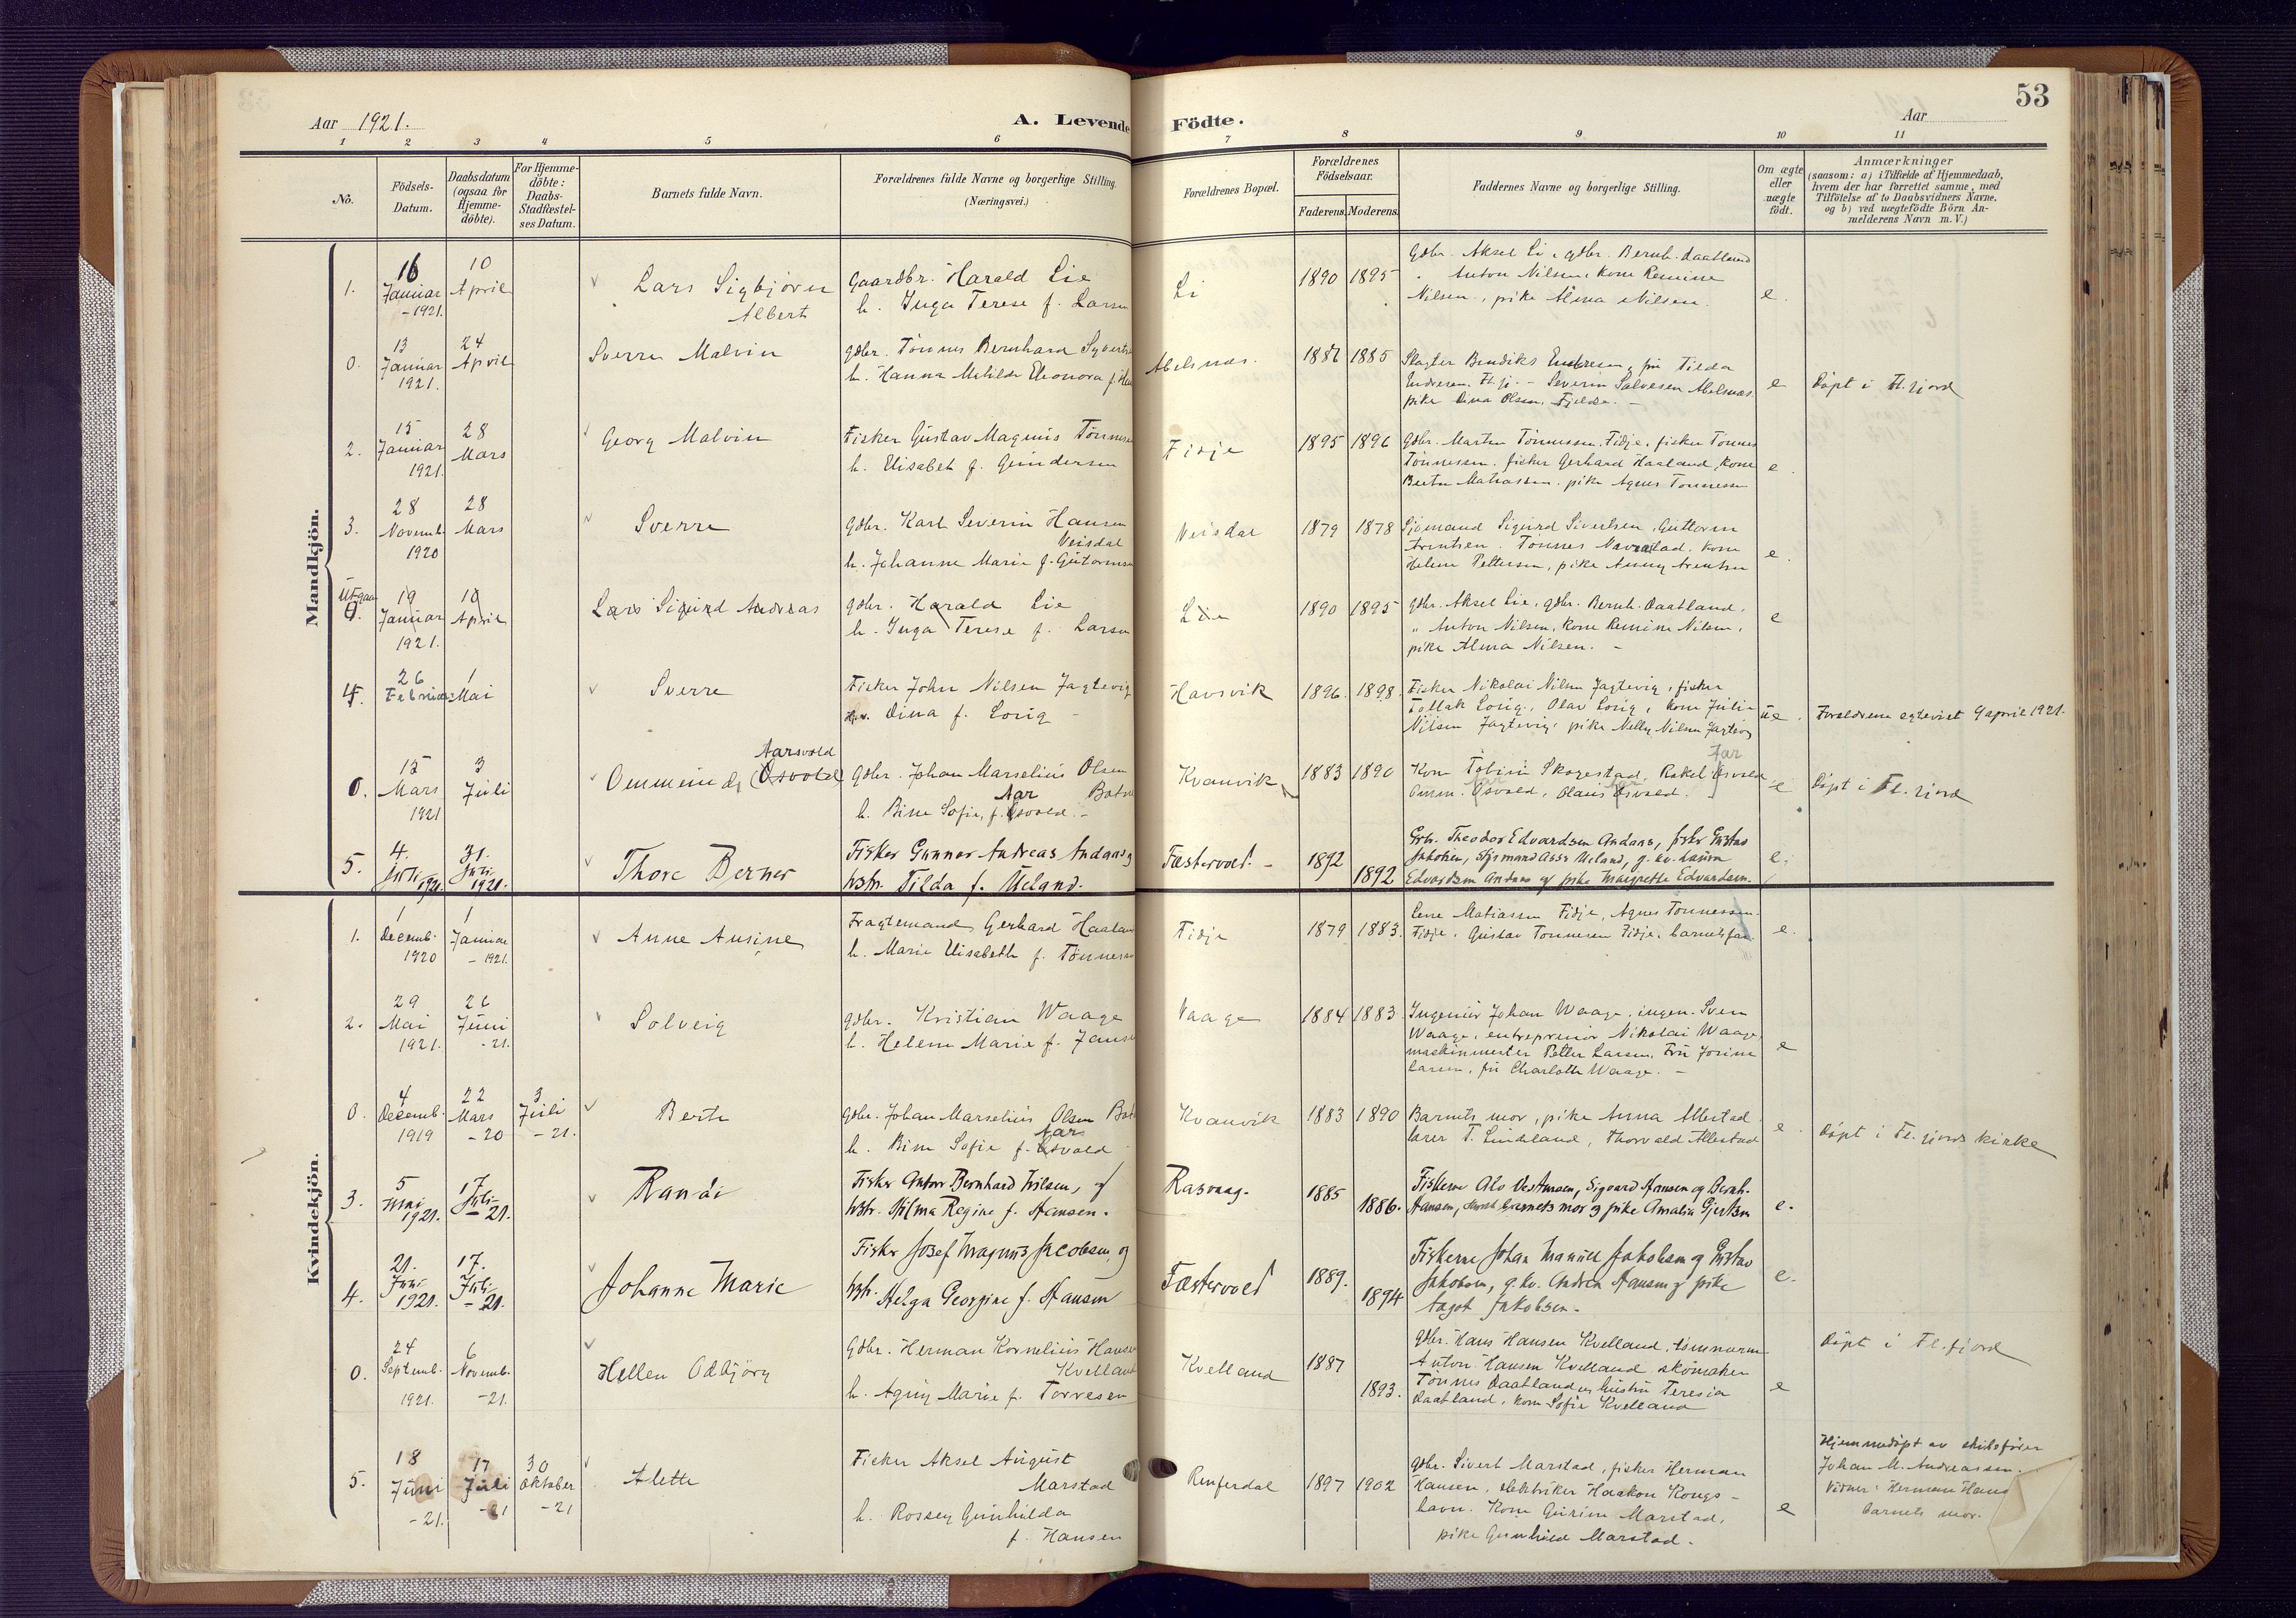 53
Aar 1921.
A. Levende Födte.
Aar
1 2 3 4 5 6 7 8 9 10 11
No.
Födsels-
Datum.
Daabsdatum
(ogsaa for
Hjemme-
döbte).
For Hjemme-
döbte:
Daabs-
Stadfæstel-
ses Datum.
Barnets fulde Navn.
Forældrenes fulde Navne og borgerlige Stilling.
(Næringsvei.)
Forældrenes Bopæl.
Forældrenes
Födselsaar.
Faderens. Moderens.
Faddernes Navne og borgerlige Stilling.
Om ægte
eller
uægte
födt.
Anmærkninger
(saasom: a) i Tilfælde af Hjemmedaab,
hvem der har forrettet samme, med
Tilföielse af to Daabsvidners Navne,
og b) ved uægtefödte Börn An-
melderens Navn m. V.)
Mandkjön.
1.
16
Januar
-1921.
10
April
Lars Sigbjörn
Albert
Gaardbr. Harald Lie
h. Inga Terese f. Larsen
Li
1890 1895
Gdbr. Aksel Li, gdbr. Bernh. Daatland
" Anton Nilsen, kone Remine
Nilsen, pike Alma Nilsen.
e.
0.
13
Januar
1921.
24
April
Sverre Malvin
gdbr. Tönnes Bernhard
h. Hanna Matilde Eleonora f.
Abelsnæs.
1886 1885
Slagter Bendiks Endresen, fru Tilda
Endresen, Fl.fj. - Severin Salvesen Abelsnæs.
pike Dina Olsen, Fjelde. -
e
Döpt i Fl. fjord
2.
15
Januar
1921.
28
Mars
Georg Malvin
Fisker Gustav Magnus Tönnesen
h. Elisabet f. Gundersen
Fidje
1895 1896
Gdbr. Martin Tönnessen, Fidje, fisker Tönnes
Tönnessen, fisker Gerhard Haaland, kone
Berte Matiassen, pike Agnes Tönnessen
e.
3.
28
Novemb.
1920
28
Mars
Sverre
Gdbr. Karl Severin Hansen
Veisdal
h. Johanne Marie f. Gutormsen
Veisdal
1879 1878
Sjömand Sigurd Sivertsen, Guttorm
Arentsen, Tönnes Navrestad, kone
Helene Pettersen, pike Anny Arentsen
e.
Utgaar
19
Januar
1921.
10
April
Lars Sigurd Andreas
gdbr. Harald Lie
h. Inga Terese f. Larsen
Lie
1890 1895
gdbr. Aksel Lie, gdbr. Bernh. Daatland,
" Anton Nilsen, kone Remine Nilsen,
pike Alma Nilsen. -
e
4.
26
Februar
1
Mai
Sverre
Fisker John Nilsen Jagtevig
h. Dina f. Lorig -
Havsvik
1896. 1898.
Fisker Nikolai Nilsen Jagtevig, fisker
Tollak Lorig, Olav Lorig, kone Julie
Nilsen Jagtevig, pike Nelly Nilsen Jagtevig
ue.
Forældrene egteviet 9 april 1921.
0.
15
Mars
1921
3
Juli
Aarsvold
Ommund (Osvold)
gdbr. Johan Marselius Olsen
Aar
h. Bine Sofie, f. Osvold. -
Kvanvik
1883 1890
Kone Tobine Skogestad, Rakel Osvold,
Omm. Osvold, Olaus Osvold.
e
Döpt i Fl. fjord
5.
4.
Juli 1921.
31.
Juli
1921.
Thore Berner
Fisker Gunnar Andreas Andaas og
hstr. Tilda f. Ueland.
Fæstervold. -
1892
1892
Grbr. Theodor Edvardsen Andaas, fisker Gustav
Jakobsen, Sjömand Asser Ueland, g. kv. Laura
Edvardsen Andaas og pike Margrethe Edvardsen.
e.
Kvindekjön.
1.
1
Decemb.
1920
1
Januar
- 1921.
Anne Ausine
Fragtemand Gerhard Haaland
h. Marie Elisabeth f. Tönnesen
Fidje
1879 1883.
Lene Matiassen Fidje, Agnes Tönnessen
Fidje, Gustav Tönnesen Fidje, barnets far.
e.
2.
29
Mai
1921.
26
Juni
-21.
Solveig
gdbr. Kristian Waage
h. Helene Marie f. Jansen
Vaage
1884 1883
Ingeniör Johan Waage, ingen. Sven
Waage, entreprenör Nikolai Waage,
maskinmester Petter Larsen, Fru Josine
Larsen, fru Charlotte Waage. -
e
0.
4
Decemb.
1919
22
Mars
-20
3
Juli
-21.
Berte
gdbr. Johan Marselius Olsen
Aar
h. Bine Sofie f. Osvold
Kvanvik
1883 1890
Barnets mor, pike Anna Allestad
lærer T. Lindeland, Thorvald Allestad
e.
Döpt i Fl. fjords kirke
3.
5
Mai
1921.
17
Juli-
-21.
Randi
Fisker Anton Bernhard Nilsen, og
hstr. Hilma Regine f. Hansen.
Rasvaag.
1885
1886.
Fiskerne Alv Vestersen, Sigvard Hansen og Bernh.
Hansen, barnets mor og pike Amalie Gjertsen
e.
4.
21.
Juni
1921.
17.
Juli-
-21.
Johanne Marie
Fisker Josef Magnus Jacobsen, og
hstr. Helga Georgine f. Hansen
Fæstervold
1889.
1894
Fiskerne Johan Manuel Jakobsen og Gustav
Jakobsen, g. kv. Andrea Hansen og pike
Aagot Jakobsen.
e.
0.
24
Septemb.
1921.
6
Novemb.
-21.
Hellen Odbjörg
Gdbr. Herman Kornelius Hansen
Kvelland
h. Aguy Marie f. Torvesen
Kvelland
1887
1893.
Gdbr. Hans Hansen Kvelland, tömmerm.
Anton Hansen Kvelland, skomaker
Tönnes Daatland og hustru Teresia
Daatland, kone Sofie Kvelland
e
Döpt i Fl. fjord
5.
18
Juni
-21.
17
Juli
-21
30
Oktober
-21
Alette
Fisker Aksel August
Marstad
h. Rossey Gunhilda
f. Hansen
Renferdal
1897 1902
Gdbr. Sivert Marstad, fisker Herman
Hansen, elektriker Haakon Kongs-
havn. Kone Gurine Marstad,
pike Gunhild Marstad.
e
Hjemmedöpt av skibsförer
Johan M. Andreassen.
Vidner: Herman Hans
barnets mor.